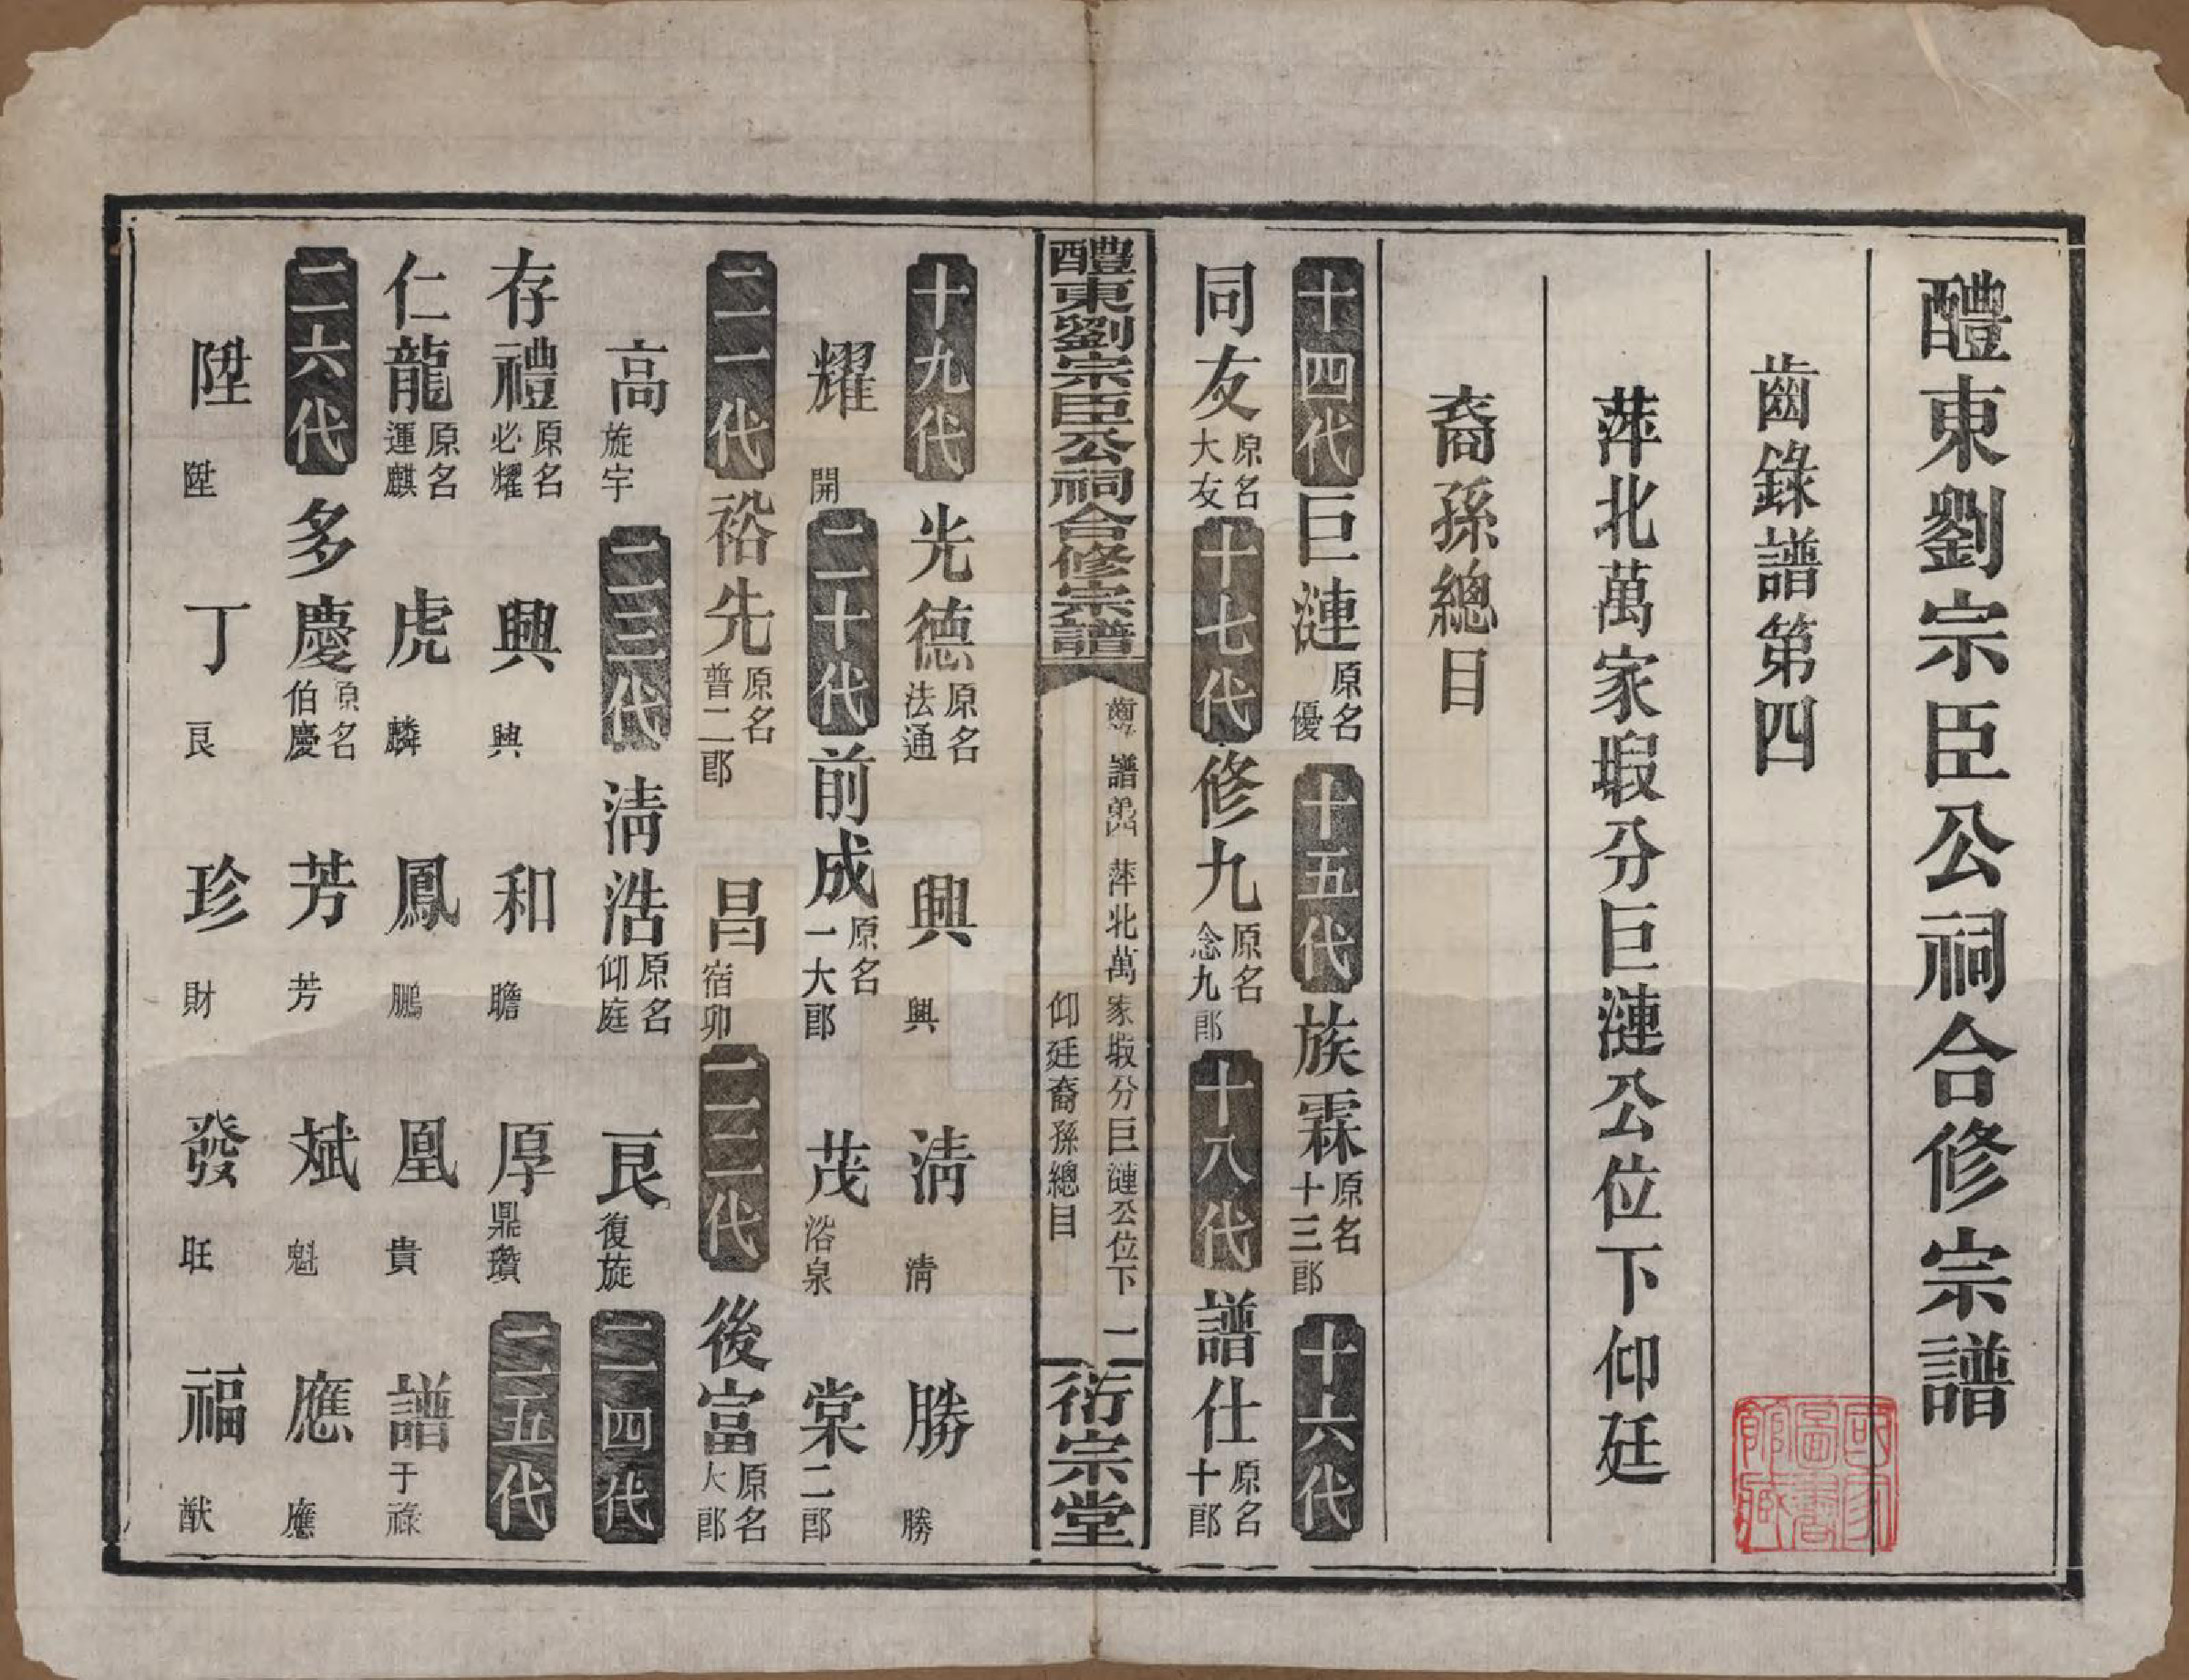 醴東劉宗臣公祠合修宗譜
齒錄譜第四
萍北萬家塅分巨漣公位下仰廷
裔孫總目
十四代 巨漣 原名優 十五代 族霖 原名十三郎 十六代
同友 原名大友 十七代 修九 原名念九郎 十八代 譜仕 原名十郎
醴東劉宗臣公祠合修宗譜
齒錄譜第四 萍北萬家塅分巨漣公位下 一
仰廷裔孫總目
衍宗堂
十九代 光德 原名法通 興 興 清 清 勝 勝
耀 開 二十代 前成 原名一大郎 茂 浴泉 棠 二郎
二一代 裕先 原名普二郎 昌 宿卯 二二代 後富 原名大郎
高 旋宇 二三代 淸浩 原名仰庭 良 復旋 二四代
存禮 原名必耀 興 興 和 瞻 厚 鼎瓚 二五代
仁龍 原名運麒 虎 麟 鳳 鵬 凰 貴 譜 于祿
二六代 多慶 原名伯慶 芳 芳 斌 魁 應 應
陞 陞 丁 良 珍 財 發 旺 福 猷
國家圖書館藏